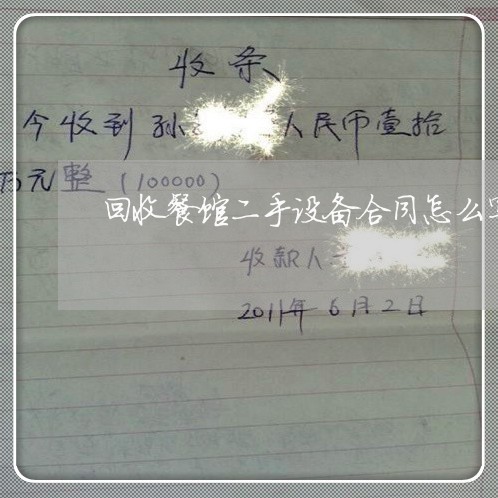 收条
今收到孙 人民币壹拾
万元整(100000)
回收餐馆二手设备合同怎么
收款人
2011年6月2日